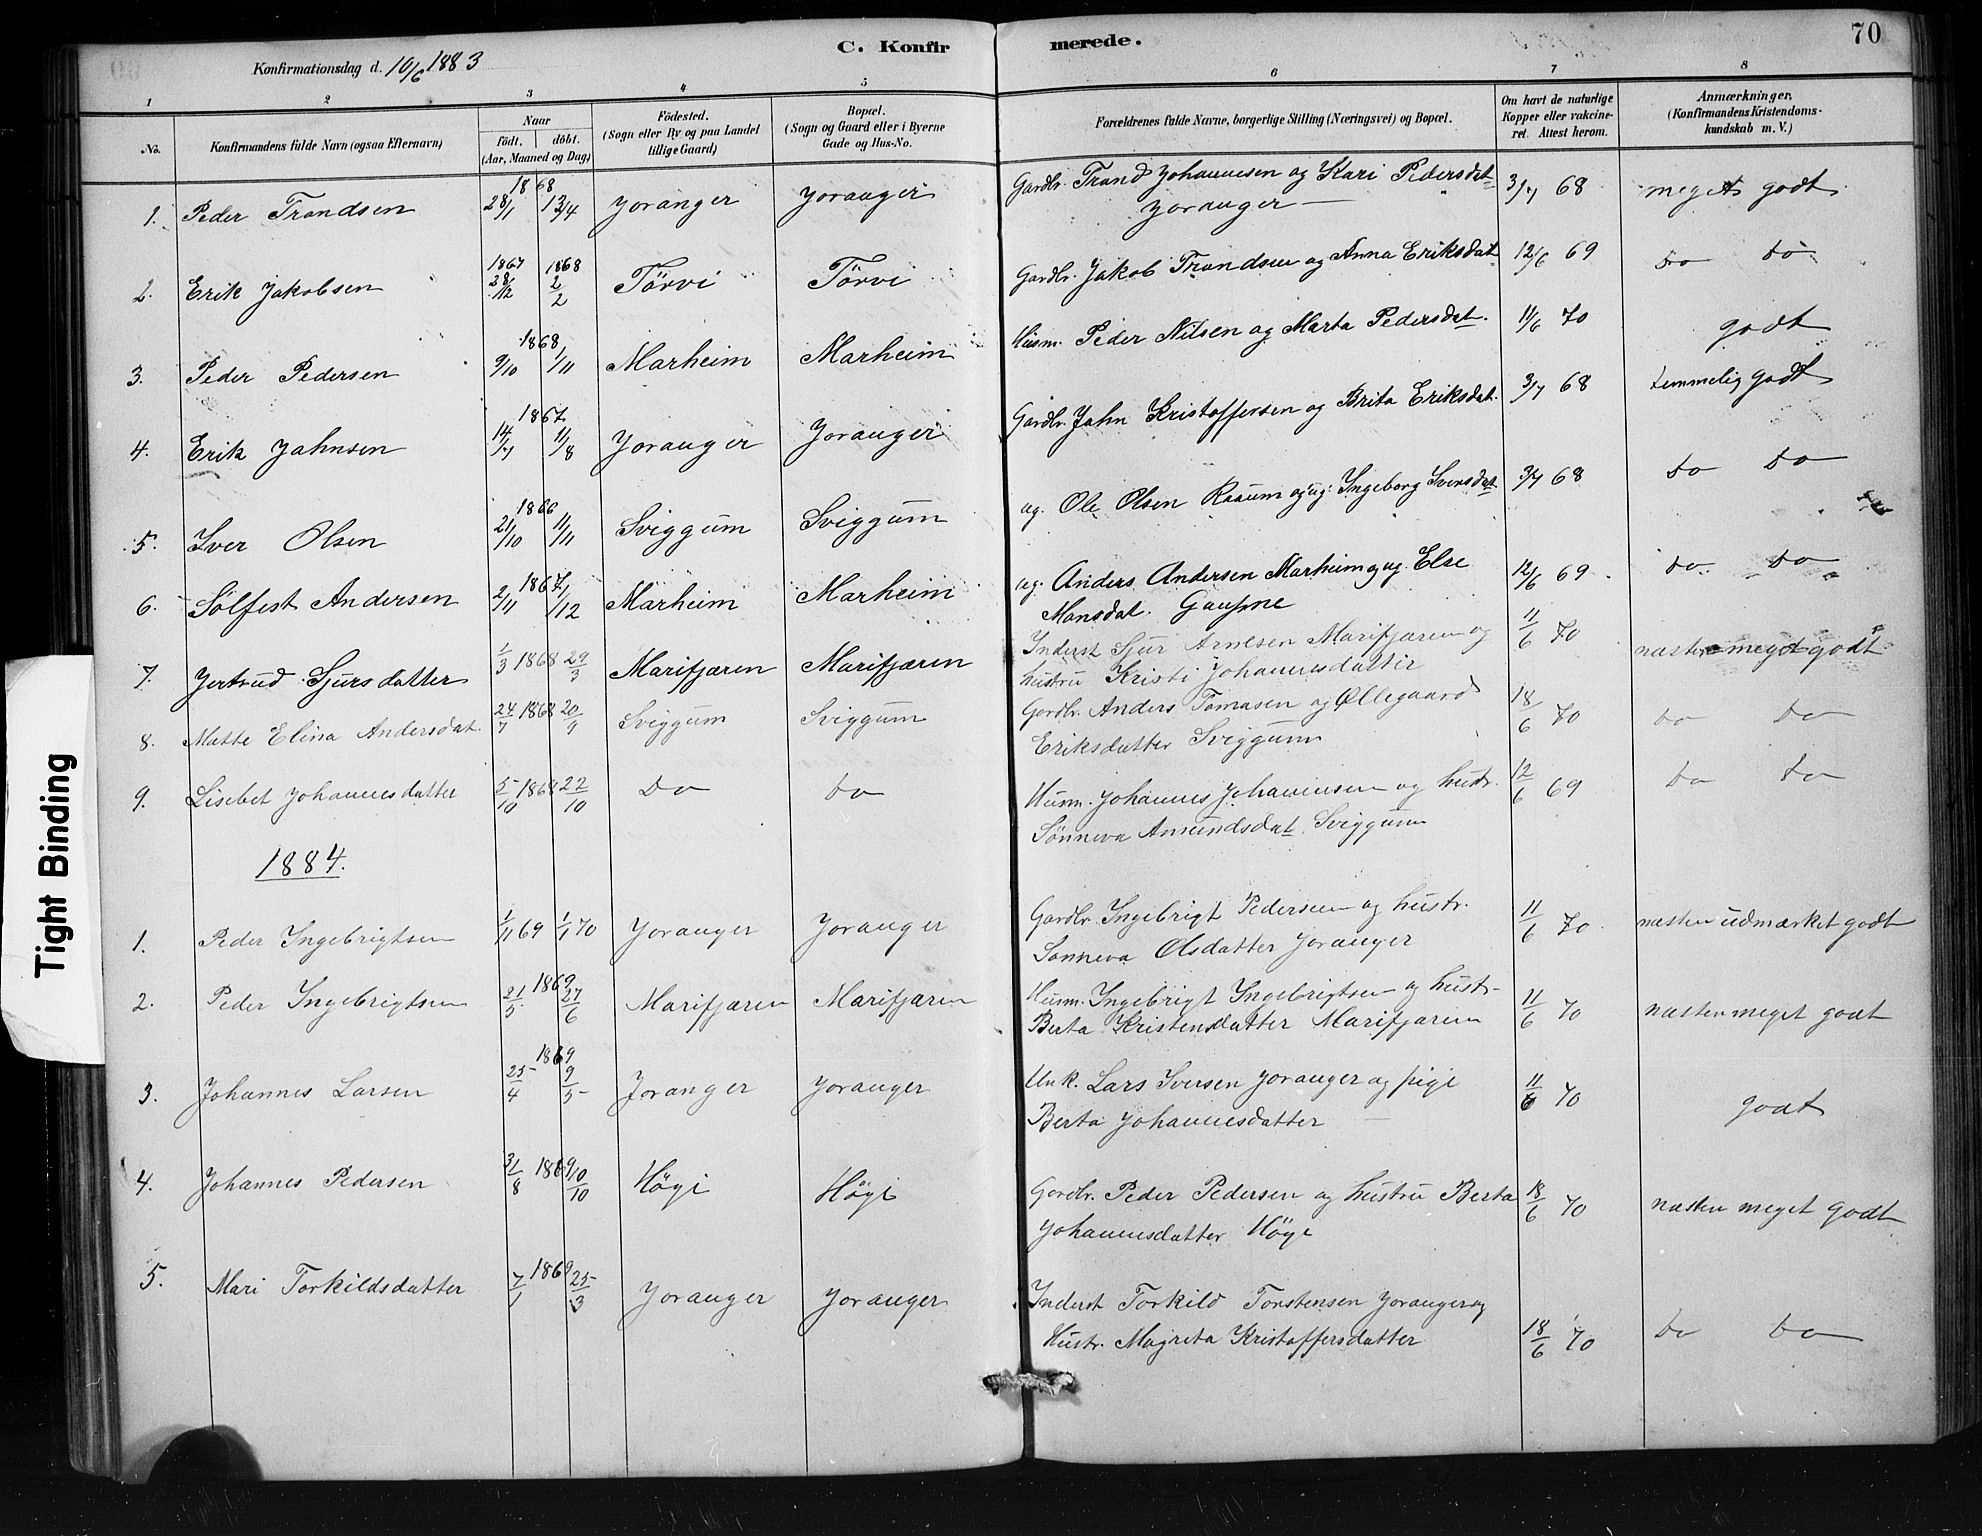 C. Konfirmerede. 70
Konfirmationsdag d. 10/6 1883
1 2 3 4 5 6 7 8
No. Konfirmandens fulde Navn (ogsaa Efternavn) Naar født. døbt. (Aar, Maaned og Dag) Fødested. (Sogn eller By og paa Landet tillige Gaard) Bopæl. (Sogn og Gaard eller i Byerne Gade og Hus-No. Forældrenes fulde Navne, borgerlige Stilling (Næringsvei) og Bopæl. Om havt de naturlige Kopper eller vakcineret. Attest herom. Anmærkninger. (Konfirmandens Kristendomskundskab m. V.)
1. Peder Trondsen 1868 28/1 13/4 Joranger Joranger Gardbr. Trond Johannesen og Kari Pedersdat 3/7 68 meget godt
Joranger —
2. Erik Jakobsen 1867 28/12 1868 2/2 Törvi Törvi Gardbr. Jakob Trondsen og Anna Eriksdat 12/6 69 Do Do
3. Peder Pedersen 1868 9/10 1/11 Marheim Marheim Husm. Peder Nilsen og Marta Pedersdat. 11/6 70 godt
4. Erik Jahnsen 1867 14/7 11/8 Joranger Joranger Gardbr. Jahn Kristoffersen og Brita Eriksdat. 3/7 68 temmelig godt
5. Iver Olsen 1866 21/10 1/11 Sviggum Sviggum ug. Ole Olsen Raaum og ug: Ingeborg Iversdat 3/7 68 Do Do
6. Sölfest Andersen 1867 2/11 1/12 Marheim Marheim ug. Anders Andersen Marheim og ug. Else 12/6 69 Do Do
Monsdat. Gaupne
7. Jertrud Sjursdatter 1/3 1868 29/3 Marifjæren Marifjæren Inderst Sjur Arnesen Marifjæren og 11/6 70 næsten meget godt
hustru Kristi Johannesdatter
8. Matte Elina Andersdat. 24/7 1868 20/9 Sviggum Sviggum Gardbr. Anders Tomasen og Øllegaard 18/6 70 Do Do
Eriksdatter Sviggum
9. Lisebet Johannesdatter 5/10 1868 22/10 Do Do Husm. Johannes Johannesen og hustr. 12/6 69 Do Do
Sönneva Amundsdat. Sviggum
1884.
1. Peder Ingebrigtsen 1/11 69 1/1 70 Joranger Joranger Gardbr. Ingebrigt Pedersen og hustr. 11/6 70 næsten udmærket godt
Sonneva Olsdatter Joranger
2. Peder Ingebrigtsen 21/5 1869 27/6 Marifjæren Marifjæren Husm. Ingebrigt Ingebrigtsen og hustr. 11/6 70 næsten meget godt
Berta Kristensdatter Marifjæren
3. Johannes Larsen 25/4 1869 9/5 Joranger Joranger Unk. Lars Iversen Joranger og pige 11/6 70 godt
Berta Johannesdatter —
4. Johannes Pedersen 31/8 1869 10/10 Högi Högi Gardbr. Peder Pedersen og hustru Berta 18/6 70 næsten meget godt
Johannesdatter Högi
5. Mari Torkildsdatter 7/1 1869 25/3 Joranger Joranger Inderst Torkild Torstensen Joranger og
Hustr. Magreta Kristoffersdatter 18/6 70 Do Do
Tight Binding